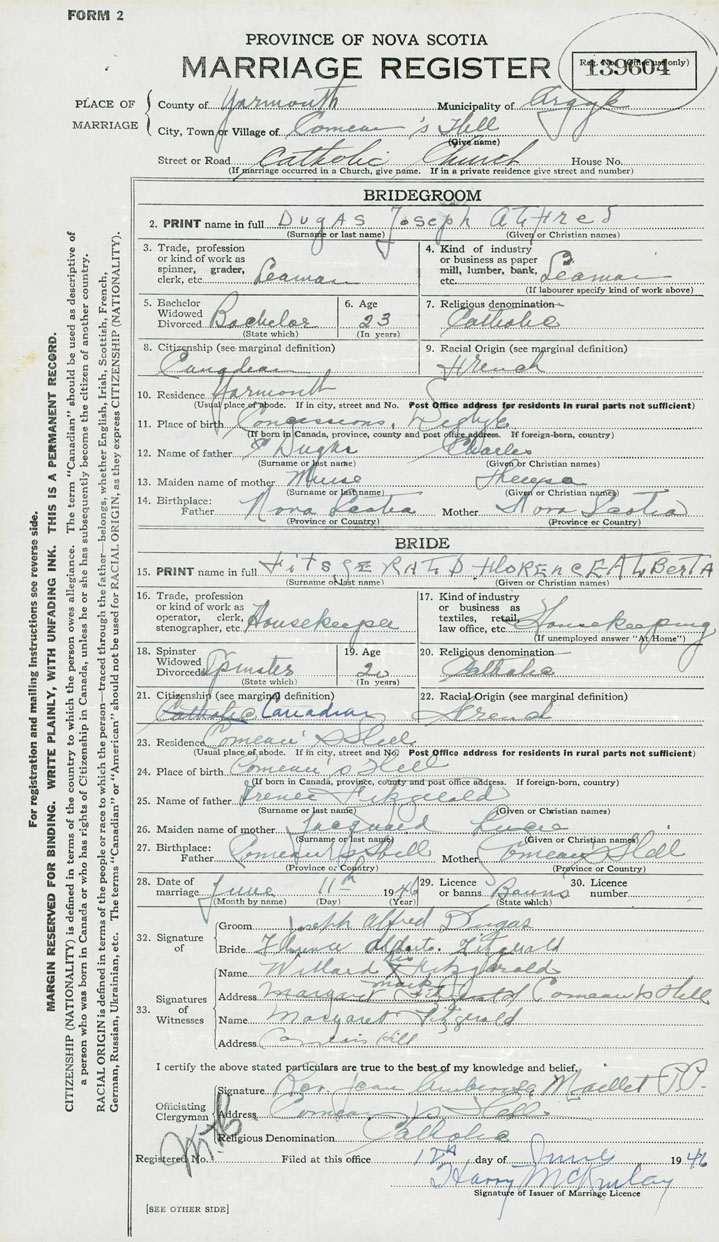 FORM 2
PROVINCE OF NOVA SCOTIA
MARRIAGE REGISTER
Reg. No. (Office use only)
139604
PLACE OF MARRIAGE
County of Yarmouth Municipality of Argyle
City, Town or Village of Comeau's Hill
(Give name)
Street or Road Catholic Church House No.
(If marriage occurred in a Church, give name. If in a private residence give street and number)
BRIDEGROOM
2. PRINT name in full DUGAS Joseph ALFred
(Surname or last name) (Given or Christian names)
3. Trade, profession or kind of work as spinner, grader, clerk, etc. Seaman
4. Kind of industry or business as paper mill, lumber, bank, etc. Seaman
(If labourer specify kind of work above)
5. Bachelor Widowed Divorced Bachelor
(State which)
6. Age 23
(In years)
7. Religious denomination Catholic
8. Citizenship (see marginal definition) Canadian
9. Racial Origin (see marginal definition) French
10. Residence Yarmouth
(Usual place of abode. If in city, street and No. Post Office address for residents in rural parts not sufficient)
11. Place of birth Concessions, Digby
(If born in Canada, province, county and post office address. If foreign-born, country)
12. Name of father Dugas Charles
(Surname or last name) (Given or Christian names)
13. Maiden name of mother Muise Theresa
(Surname or last name) (Given or Christian names)
14. Birthplace: Father Nova Scotia Mother Nova Scotia
(Province or Country) (Province or Country)
BRIDE
15. PRINT name in full FitsGERALD FLORENCE ALBertA
(Surname or last name) (Given or Christian names)
16. Trade, profession or kind of work as operator, clerk, stenographer, etc. Housekeeper
17. Kind of industry or business as textiles, retail, law office, etc. Housekeeping
(If unemployed answer "At Home")
18. Spinster Widowed Divorced Spinster
(State which)
19. Age 20
(In years)
20. Religious denomination Catholic
21. Citizenship (see marginal definition) Catholic Canadian
22. Racial Origin (see marginal definition) French
23. Residence Comeau's Hill
(Usual place of abode. If in city, street and No. Post Office address for residents in rural parts not sufficient)
24. Place of birth Comeau's Hill
(If born in Canada, province, county and post office address. If foreign-born, country)
25. Name of father Fitzgerald
(Surname or last name) (Given or Christian names)
26. Maiden name of mother Jacquard
(Surname or last name) (Given or Christian names)
27. Birthplace: Father Comeau's Hill Mother Comeau's Hill
(Province or Country) (Province or Country)
28. Date of marriage June 11th 1946
(Month by name) (Day) (Year)
29. Licence or banns Banns
(State which)
30. Licence number
32. Signature of
Groom Joseph Alfred Dugas
Bride Florence Alberta Fitzgerald
33. Signatures of Witnesses
Name Willard his X mark Fitzgerald
Address Margaret Fitzgerald Comeau's Hill
Name Margaret Fitzgerald
Address Comeau's Hill
I certify the above stated particulars are true to the best of my knowledge and belief,
Officiating Clergyman
Signature Rev. Jean Maillet P.P.
Address Comeau's Hill
Religious Denomination Catholic
Registered No. Filed at this office 12th day of 1946
Harry McKinlay
Signature of Issuer of Marriage Licence
[SEE OTHER SIDE]
For registration and mailing instructions see reverse side.
MARGIN RESERVED FOR BINDING. WRITE PLAINLY, WITH UNFADING INK. THIS IS A PERMANENT RECORD.
CITIZENSHIP (NATIONALITY) is defined in terms of the country to which the person owes allegiance. The term "Canadian" should be used as descriptive of
a person who was born in Canada or who has rights of Citizenship in Canada, unless he or she has subsequently become the citizen of another country.
RACIAL ORIGIN is defined in terms of the people or race to which the person—traced through the father—belongs, whether English, Irish, Scottish, French,
German, Russian, Ukrainian, etc. The terms "Canadian" or "American" should not be used for RACIAL ORIGIN, as they express CITIZENSHIP (NATIONALITY).